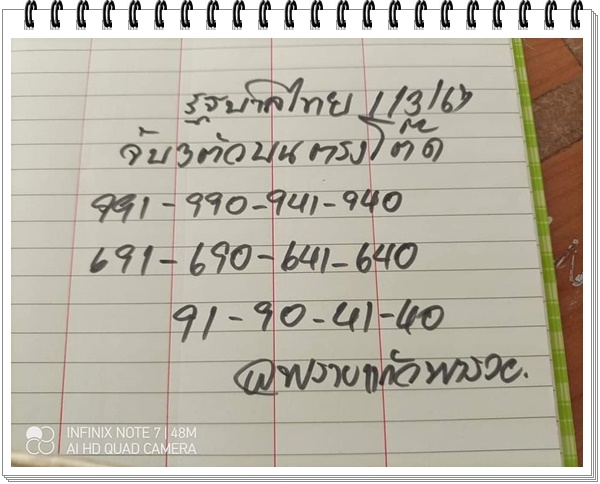 รัฐบาลไทย 1/3/67
จับ3ตัวบนตรงโต๊ด
991-990-941-940
691-690-641-640
91-90-41-40
@พรายแก้วพารวย.
INFINIX NOTE 7 | 48M
AI HD QUAD CAMERA